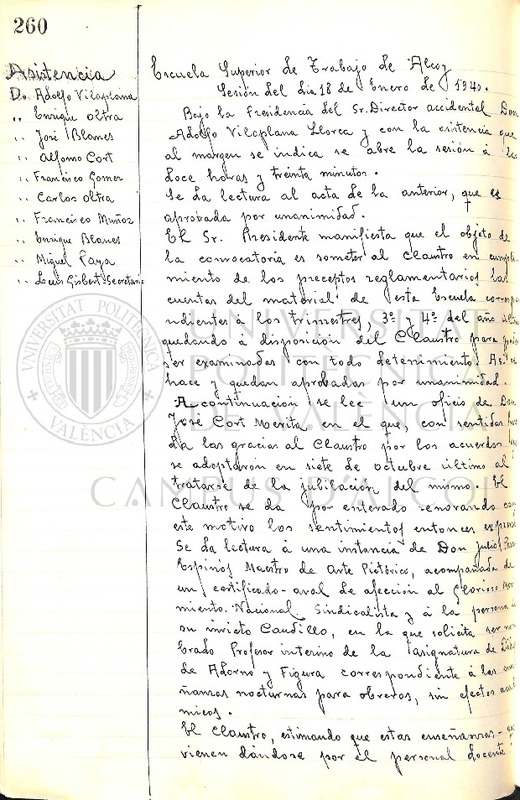 260
Asistencia
Dn. Adolfo Vilaplana
,, Enrique Oltra
,, José Blanes
,, Alfonso Cort
,, Francisco Gomer
,, Carlos Oltra
,, Francisco Muñoz
,, Enrique Blanes
,, Miguel Paya
,, Luis Gisbert-Secretario
Escuela Superior de Trabajo de Alcoy
Sesión del dia 18 de Enero de 1940.
Bajo la Presidencia del Sr. Director accidental Don
Adolfo Vilaplana Llorca y con la asistencia que
al margen se indica se abre la sesión á las
doce horas y treinta minutos.
Se da lectura al acta de la anterior, que es
aprobada por unanimidad.
El Sr. Presidente manifiesta que el objeto de
la convocatoria es someter al Claustro en cumpli-
miento de los preceptos reglamentarios las
cuentas del material de esta Escuela corresp
ndientes á los trimestres, 3º y 4º del año
quedando á disposición del Claustro para
ser examinadas con todo detenimiento. Así se
hace y quedan aprobadas por unanimidad.
A continuación se lee un oficio de Don
José Cort Merita en el que, con sentidas
da las gracias al Claustro por los acuerdos
se adoptaron en siete de octubre último al
tratarse de la jubilación del mismo. El
Claustro se da por enterado renovando con
este motivo los sentimientos entonces
Se da lectura á una instancia de Don Julio
Espinós Maestro de Arte Pictórico, acompañada de
un certificado-aval de afección al Glorioso Mov
miento Nacional Sindicalista y á la persona
su invicto Caudillo, en la que solicita ser nom
brado Profesor interino de la asignatura de Dib
de Adorno y Figura correspondiente á las
ñanzas nocturnas para obreros, sin efectos
micos.
El Claustro, estimando que estas enseñanzas-
vienen dándose por el personal docente
UNIVERSITAT
POLITÈCNICA
DE VALÈNCIA
CAMPUS D'ALCOI
UNIVERSITAT POLITECNICA
VALÈNCIA